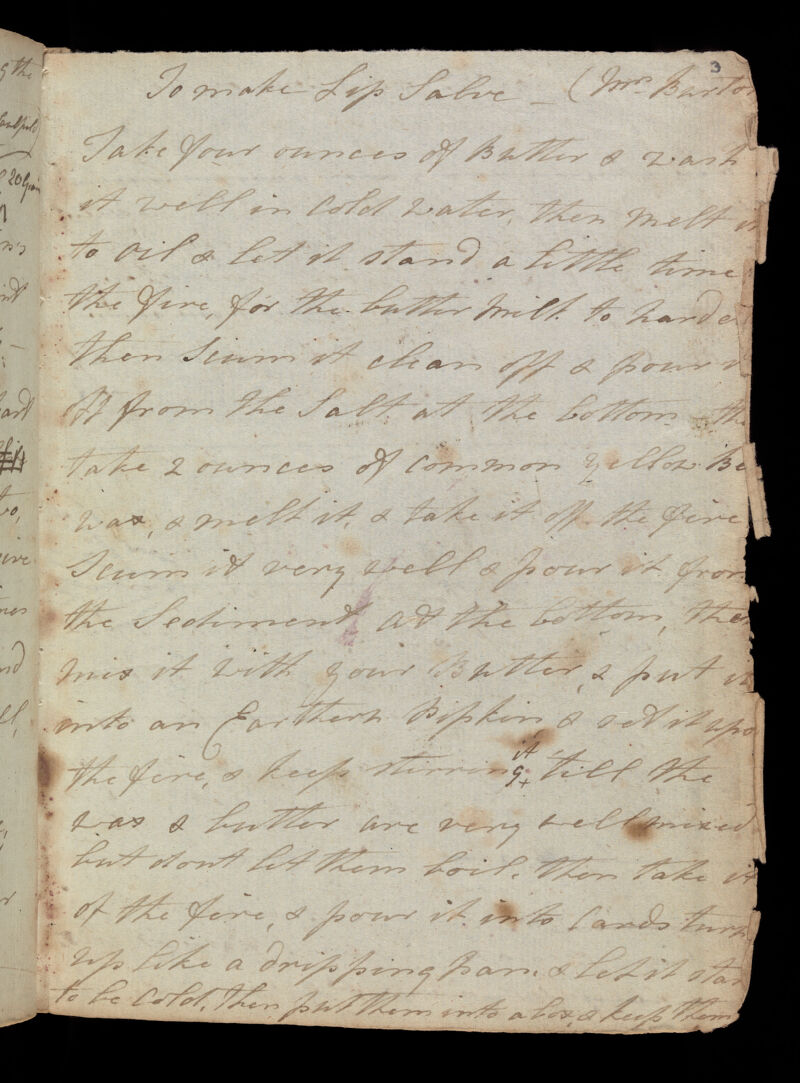 3
To make Lip Salve - (Mrs. Burton
Take four ounces of Butter & wash
it well in Cold water, then melt it
to Oil & let it stand a little time
the fire, for the butter milk to harden
then Scum it clean off & pour it
off from the Salt at the bottom the
take 2 ounces of common yellow Be
wax, & melt it, & take it off the fire
Scum it very well & pour it from
the Sediment at the bottom, then
mix it with your Butter, & put it
into an Earthern Pipkin & set it upo
the fire, & keep stirring it till the
wax & butter are very well mixed
but dont let them boil, then take it
of the fire, & pour it into Cards turn
up like a dripping pan, & let it stan
to be Cold, then put them into a box, & keep them